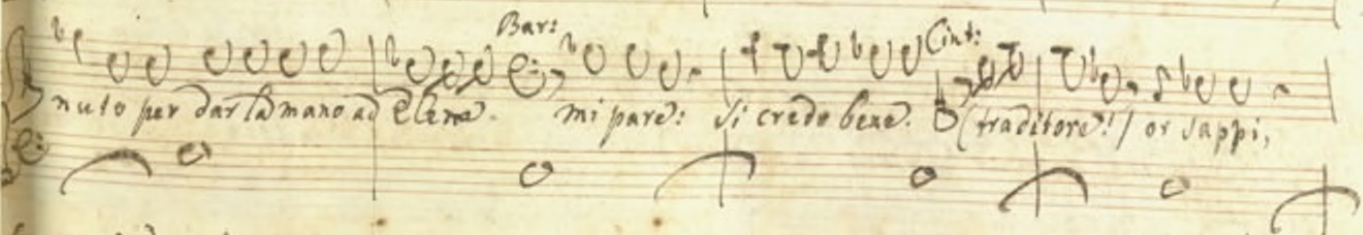 Bar: Cint:
nuto per dar la mano ad Elena. mi pare: Si credo bene. (traditore!) or sappi,